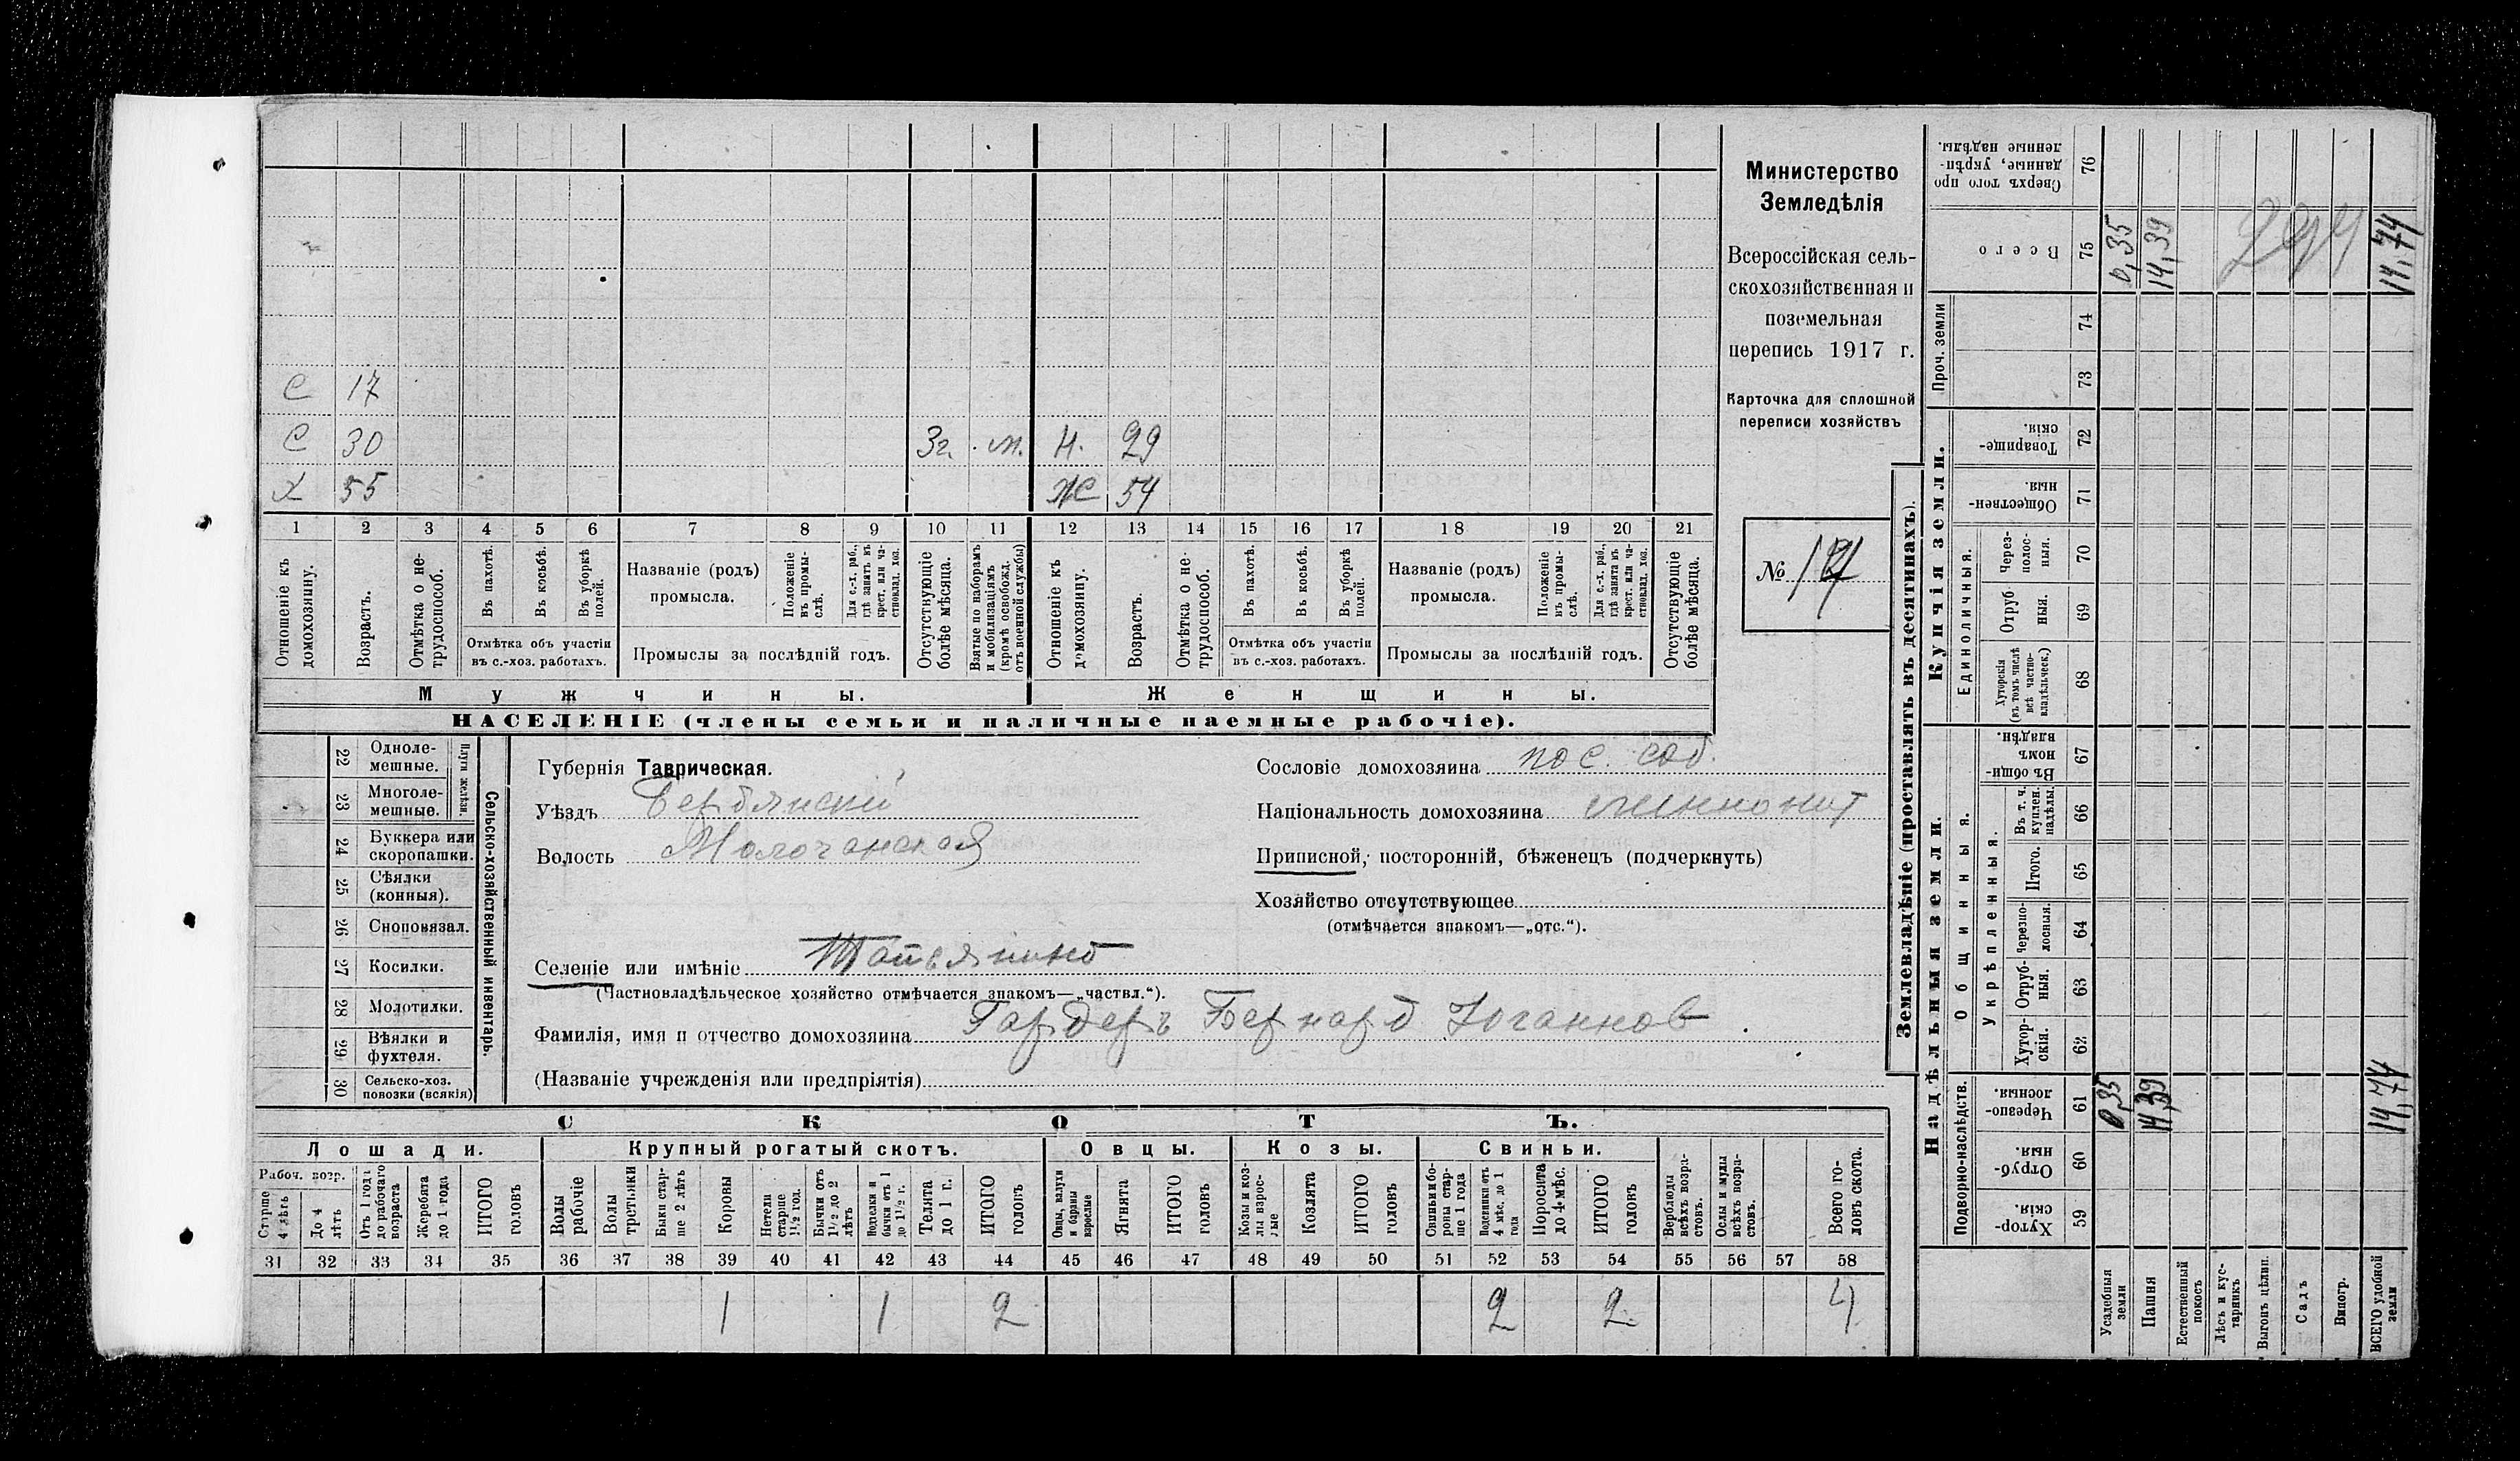 С 17
С 30 3г. м. Н. 29
Х 55 Ж 54
1 2 3 4 5 6 7 8 9 10 11 12 13 14 15 16 17 18 19 20 21
Отношеніе къ домохозяину.
Возрастъ.
Отмѣтка о нетрудоспособ.
Въ пахотѣ.
Въ косьбѣ.
Въ уборкѣ полей.
Отмѣтка объ участіи
въ с.-хоз. работахъ.
Названіе (родъ)
промысла.
Положеніе въ промыслѣ.
Для с.-х. раб., гдѣ занятъ въ крест. или частновлад. хоз.
Промыслы за послѣдній годъ.
Отсутствующіе болѣе мѣсяца.
Взятые по наборамъ и мобилизаціямъ (кромѣ освобожд. отъ военной службы)
Отношеніе къ домохозяину.
Возрастъ.
Отмѣтка о нетрудоспособ.
Въ пахотѣ.
Въ косьбѣ.
Въ уборкѣ полей.
Отмѣтка объ участіи
въ с.-хоз. работахъ.
Названіе (родъ)
промысла.
Положеніе въ промыслѣ.
Для с.-х. раб., гдѣ занята въ крест. или частновлад. хоз.
Промыслы за послѣдній годъ.
Отсутствующіе болѣе мѣсяца.
Мужчины. Женщины.
НАСЕЛЕНІЕ (члены семьи и наличные наемные рабочіе).
Министерство
Земледѣлія
Всероссійская сель-
скохозяйственная и
поземельная
перепись 1917 г.
Карточка для сплошной
переписи хозяйствъ
№
22 Одноле-
мешные.
23 Многоле-
мешные.
Плуги желѣзн.
24 Буккера или
скоропашки.
25 Сѣялки
(конныя).
26 Сноповязал.
27 Косилки.
28 Молотилки.
29 Вѣялки и
фухтеля.
30 Сельско-хоз.
повозки (всякія)
Сельско-хозяйственный инвентарь.
Губернія Таврическая.
Уѣздъ Бердянскій
Волость Молочанская
Селеніе или имѣніе
(Частновладѣльческое хозяйство отмѣчается знакомъ—„частвл.“).
Фамилія, имя и отчество домохозяина Гардеръ Бернард Иоганнов
(Названіе учрежденія или предпріятія)
Сословіе домохозяина пос. соб.
Національность домохозяина меннонит
Приписной, посторонній, бѣженецъ (подчеркнуть)
Хозяйство отсутствующее
(отмѣчается знакомъ—„отс.“).
СКОТЪ.
Лошади. Крупный рогатый скотъ. Овцы. Козы. Свиньи.
Рабоч. возр.
Старше 4 лѣтъ
До 4 лѣтъ
Отъ 1 года до рабочаго возраста
Жеребята до 1 года
ИТОГО головъ
Волы рабочіе
Волы третьяки
Быки старше 2 лѣтъ
Коровы
Нетели старше 1½ год.
Бычки отъ 1½ до 2 лѣтъ
Подтелки и бычки отъ 1 до 1½ г.
Телята до 1 г.
ИТОГО головъ
Овцы, валухи и бараны взрослые
Ягнята
ИТОГО головъ
Козы и козлы взрослые
Козлята
ИТОГО головъ
Свиньи и боровы старше 1 года
Подсвинки отъ 4 мѣс. до 1 года
Поросята до 4 мѣс.
ИТОГО головъ
Верблюды всѣхъ возрастовъ.
Ослы и мулы всѣхъ возрастовъ.
Всего головъ скота.
31 32 33 34 35 36 37 38 39 40 41 42 43 44 45 46 47 48 49 50 51 52 53 54 55 56 57 58
1 1 2 2 2 4
Землевладѣніе (проставлять въ десятинахъ).
Надѣльныя земли. Купчія земли. Проч. земли
Подворно-наслѣдств.
Общинныя.
Укрѣпленныя.
Единоличныя.
Хуторскія. 59
Отрубныя. 60
Черезполосныя. 61
Хуторскія. 62
Отрубныя. 63
Черезполосныя. 64
Итого. 65
Въ т. ч. куплен. надѣлы. 66
Въ общинномъ владѣн. 67
Хуторскія (въ томъ числѣ всѣ частновладѣльческ.) 68
Отрубныя. 69
Черезполосныя. 70
Общественныя. 71
Товарищескія. 72
73
74
Всего 75
Сверхъ того проданные, укрѣпленные надѣлы. 76
Усадебныя земли 0,35 0,35
Пашня 14,39 14,39
Естественный покосъ
Лѣсъ и кустарникъ
Выгонъ цѣлин.
Садъ
Виногр.
ВСЕГО удобной земли 14,74 14,74
294